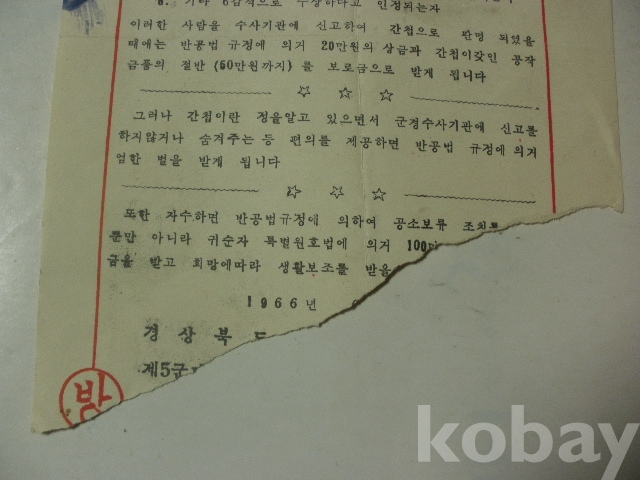 8. 기타 6감적으로 수상하다고 인정되는자
이러한 사람을 수사기관에 신고하여 간첩으로 판명 되였을
때에는 반공법 규정에 의거 20만원의 상금과 간첩이갖인 공작
금품의 절반 (50만원까지) 를 보로금으로 받게 됩니다
그러나 간첩이란 정을알고 있으면서 군경수사기관에 신고를
하지않거나 숨겨주는 등 편의를 제공하면 반공법 규정에 의거
엄한 벌을 받게 됩니다
또한 자수하면 반공법규정에 의하여 공소보류 조치를
뿐만 아니라 귀순자 특별원호법에 의거 100만
금을 받고 희망에따라 생활보조를 받을
1966년
경상북
제5군
방
kobay